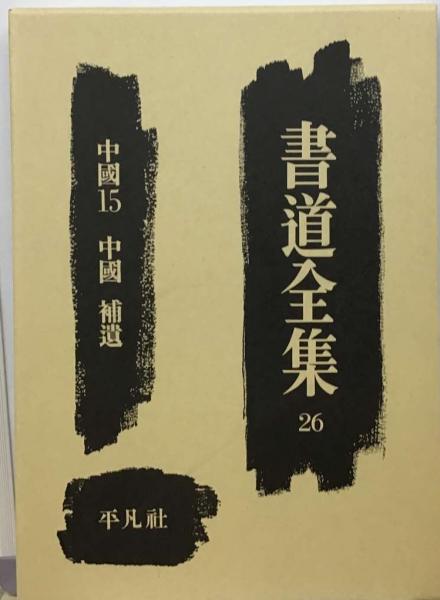 書道全集
26
中國15 中國 補遺
平凡社